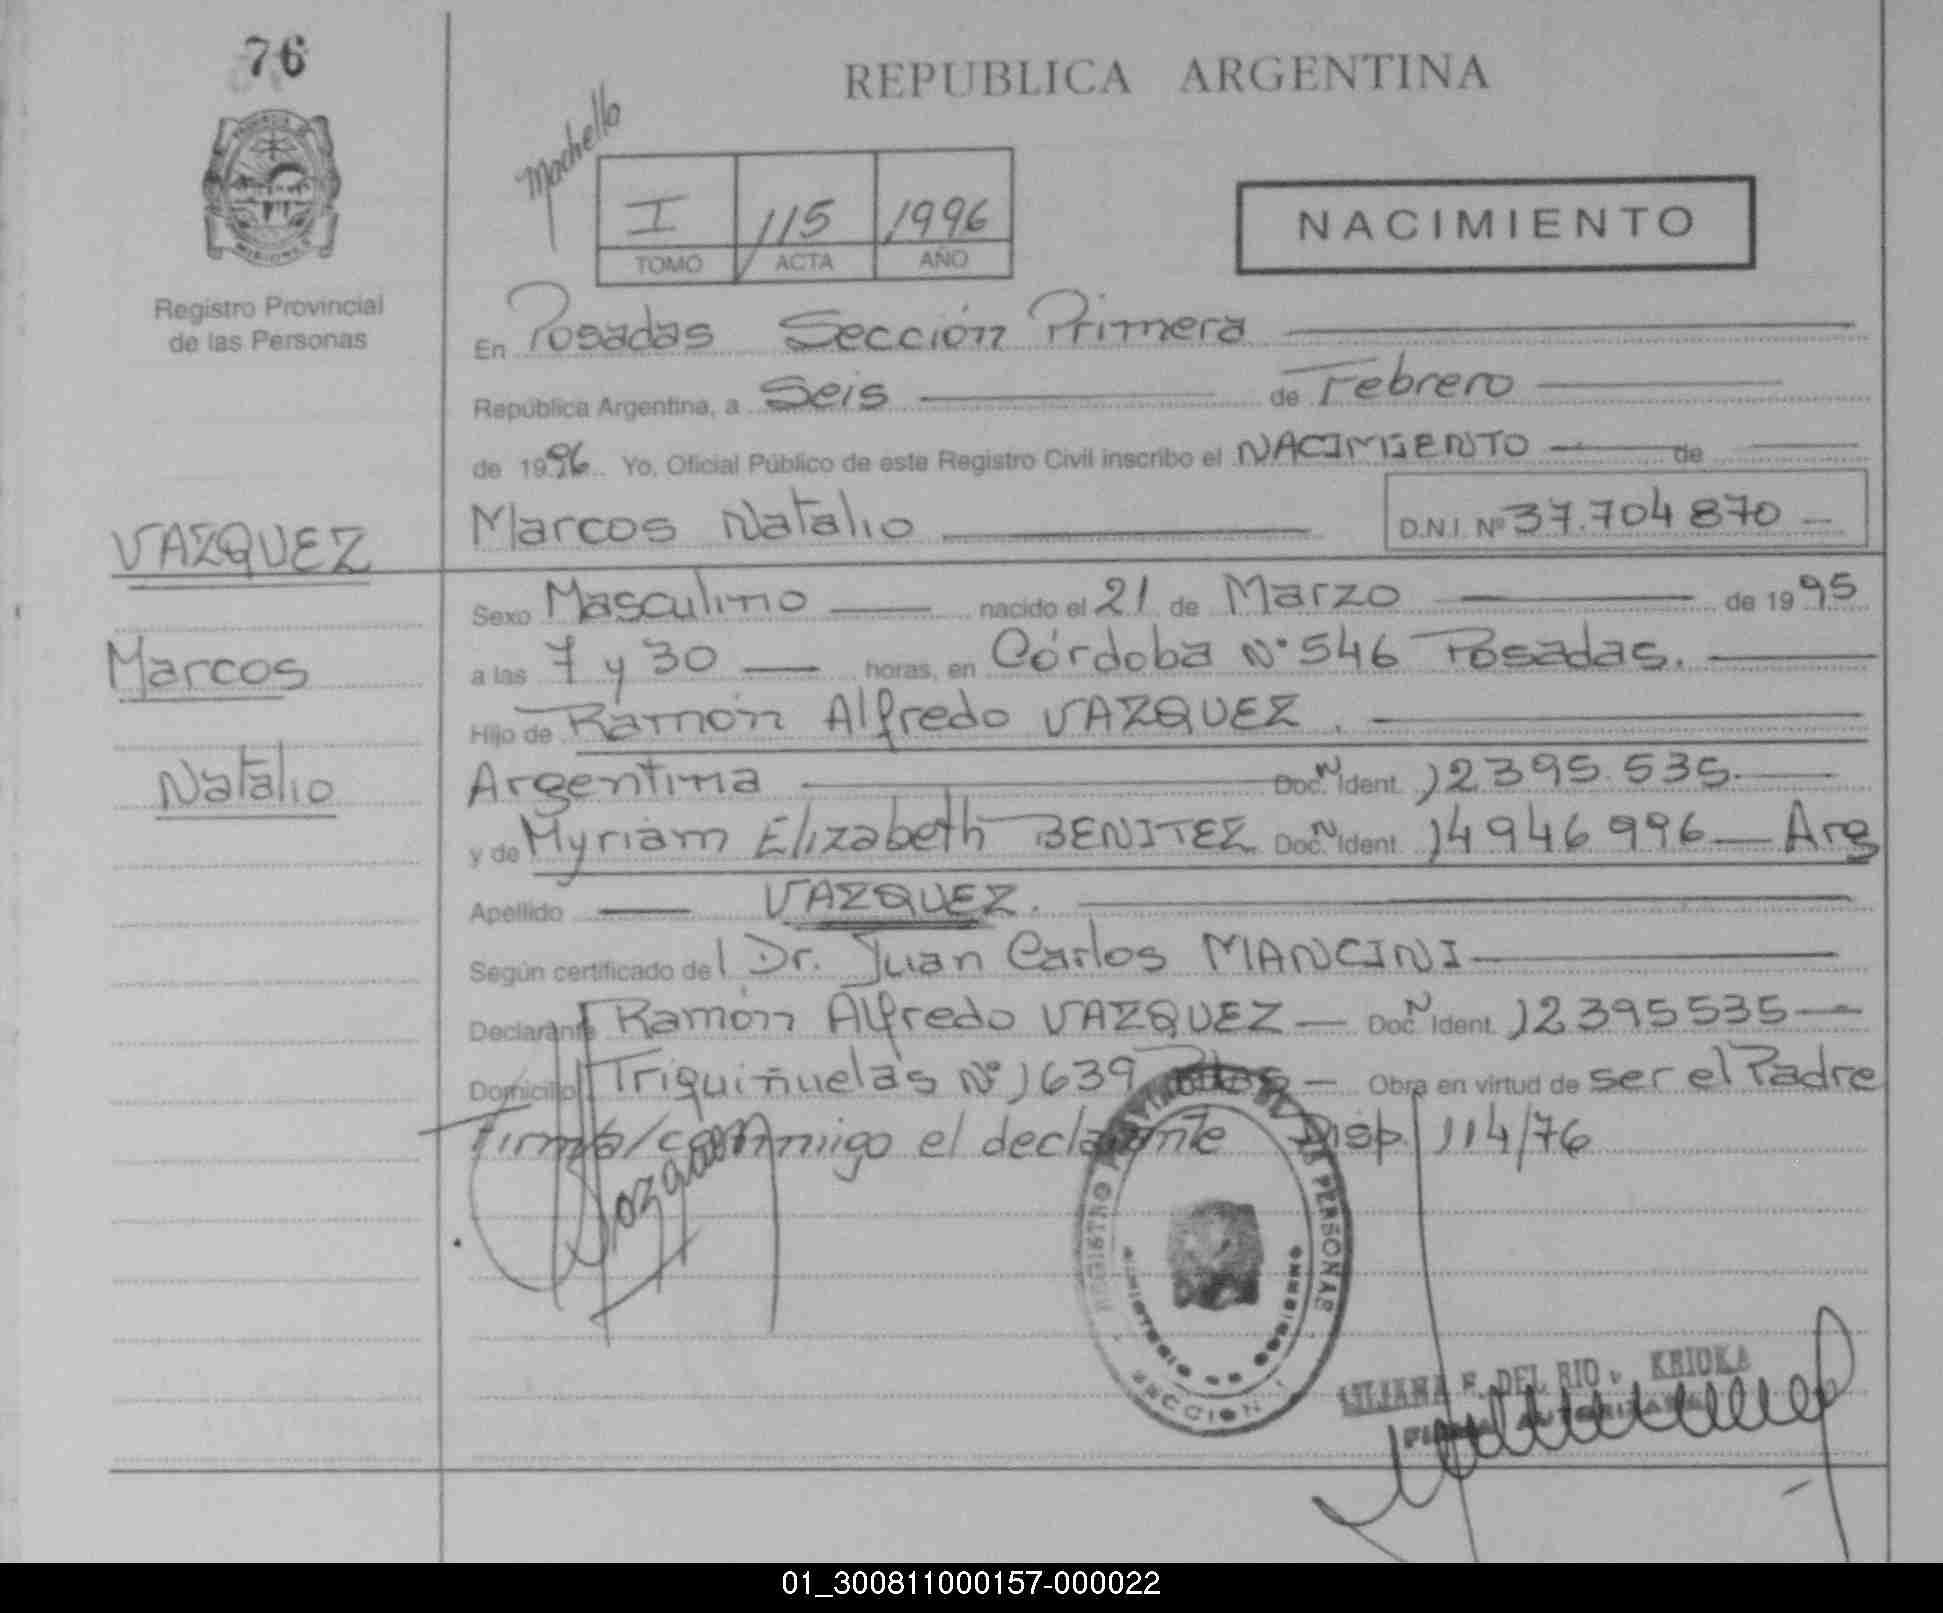 76
REPUBLICA ARGENTINA
Machello
I 115 1996
TOMO ACTA AÑO
NACIMIENTO
Registro Provincial
de las Personas
En Posadas Sección Primera
República Argentina, a Seis de Febrero
de 1996 Yo, Oficial Público de este Registro Civil inscribo el NACIMIENTO de
Marcos Natalio D.N.I. Nº 37.704 870
VAZQUEZ
Marcos
Natalio
Sexo Masculino nacido el 21 de Marzo de 1995
a las 7 y 30 horas, en Córdoba Nº 546 Posadas.
Hijo de Ramón Alfredo VAZQUEZ.
Argentina Doc. N Ident. 12395.535.
y de Myriam Elizabeth BENITEZ Doc. N Ident. 14946996 Arg
Apellido VAZQUEZ.
Según certificado del Dr. Juan Carlos MANCINI
Declarante Ramón Alfredo VAZQUEZ Doc. N Ident. 12395535
Domicilio Triquiñuelas Nº 1639 Pdas Obra en virtud de ser el Padre
Firma conmigo el declarante Disp. 114/76
REGISTRO DE LAS PERSONAS
MINISTERIO DE GOBIERNO
SECCION
LILIANA F. DEL RIO KRIOKA
FIRMA AUTORIZADA
01_300811000157-000022